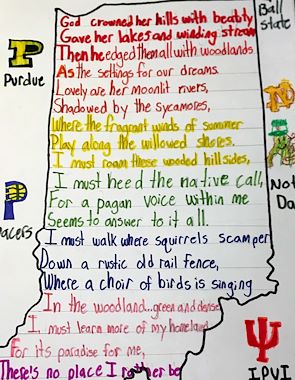 God crowned her hills with beauty
Gave her lakes and winding stream
Then he edged them all with woodlands
As the settings for our dreams.
Lovely are her moonlit rivers,
Shadowed by the sycamores,
Where the fragrant winds of summer
Play along the willowed shores.
I must roam these wooded hillsides,
I must heed the native call,
For a pagan voice within me
Seems to answer to it all.
I must walk where squirrels scamper
Down a rustic old rail fence,
Where a choir of birds is singing
In the woodland...green and dense
I must learn more of my homeland
For its paradise for me,
There's no place I rather be
P
Purdue
Pacers
Ball
State
Not
Da
IPUI